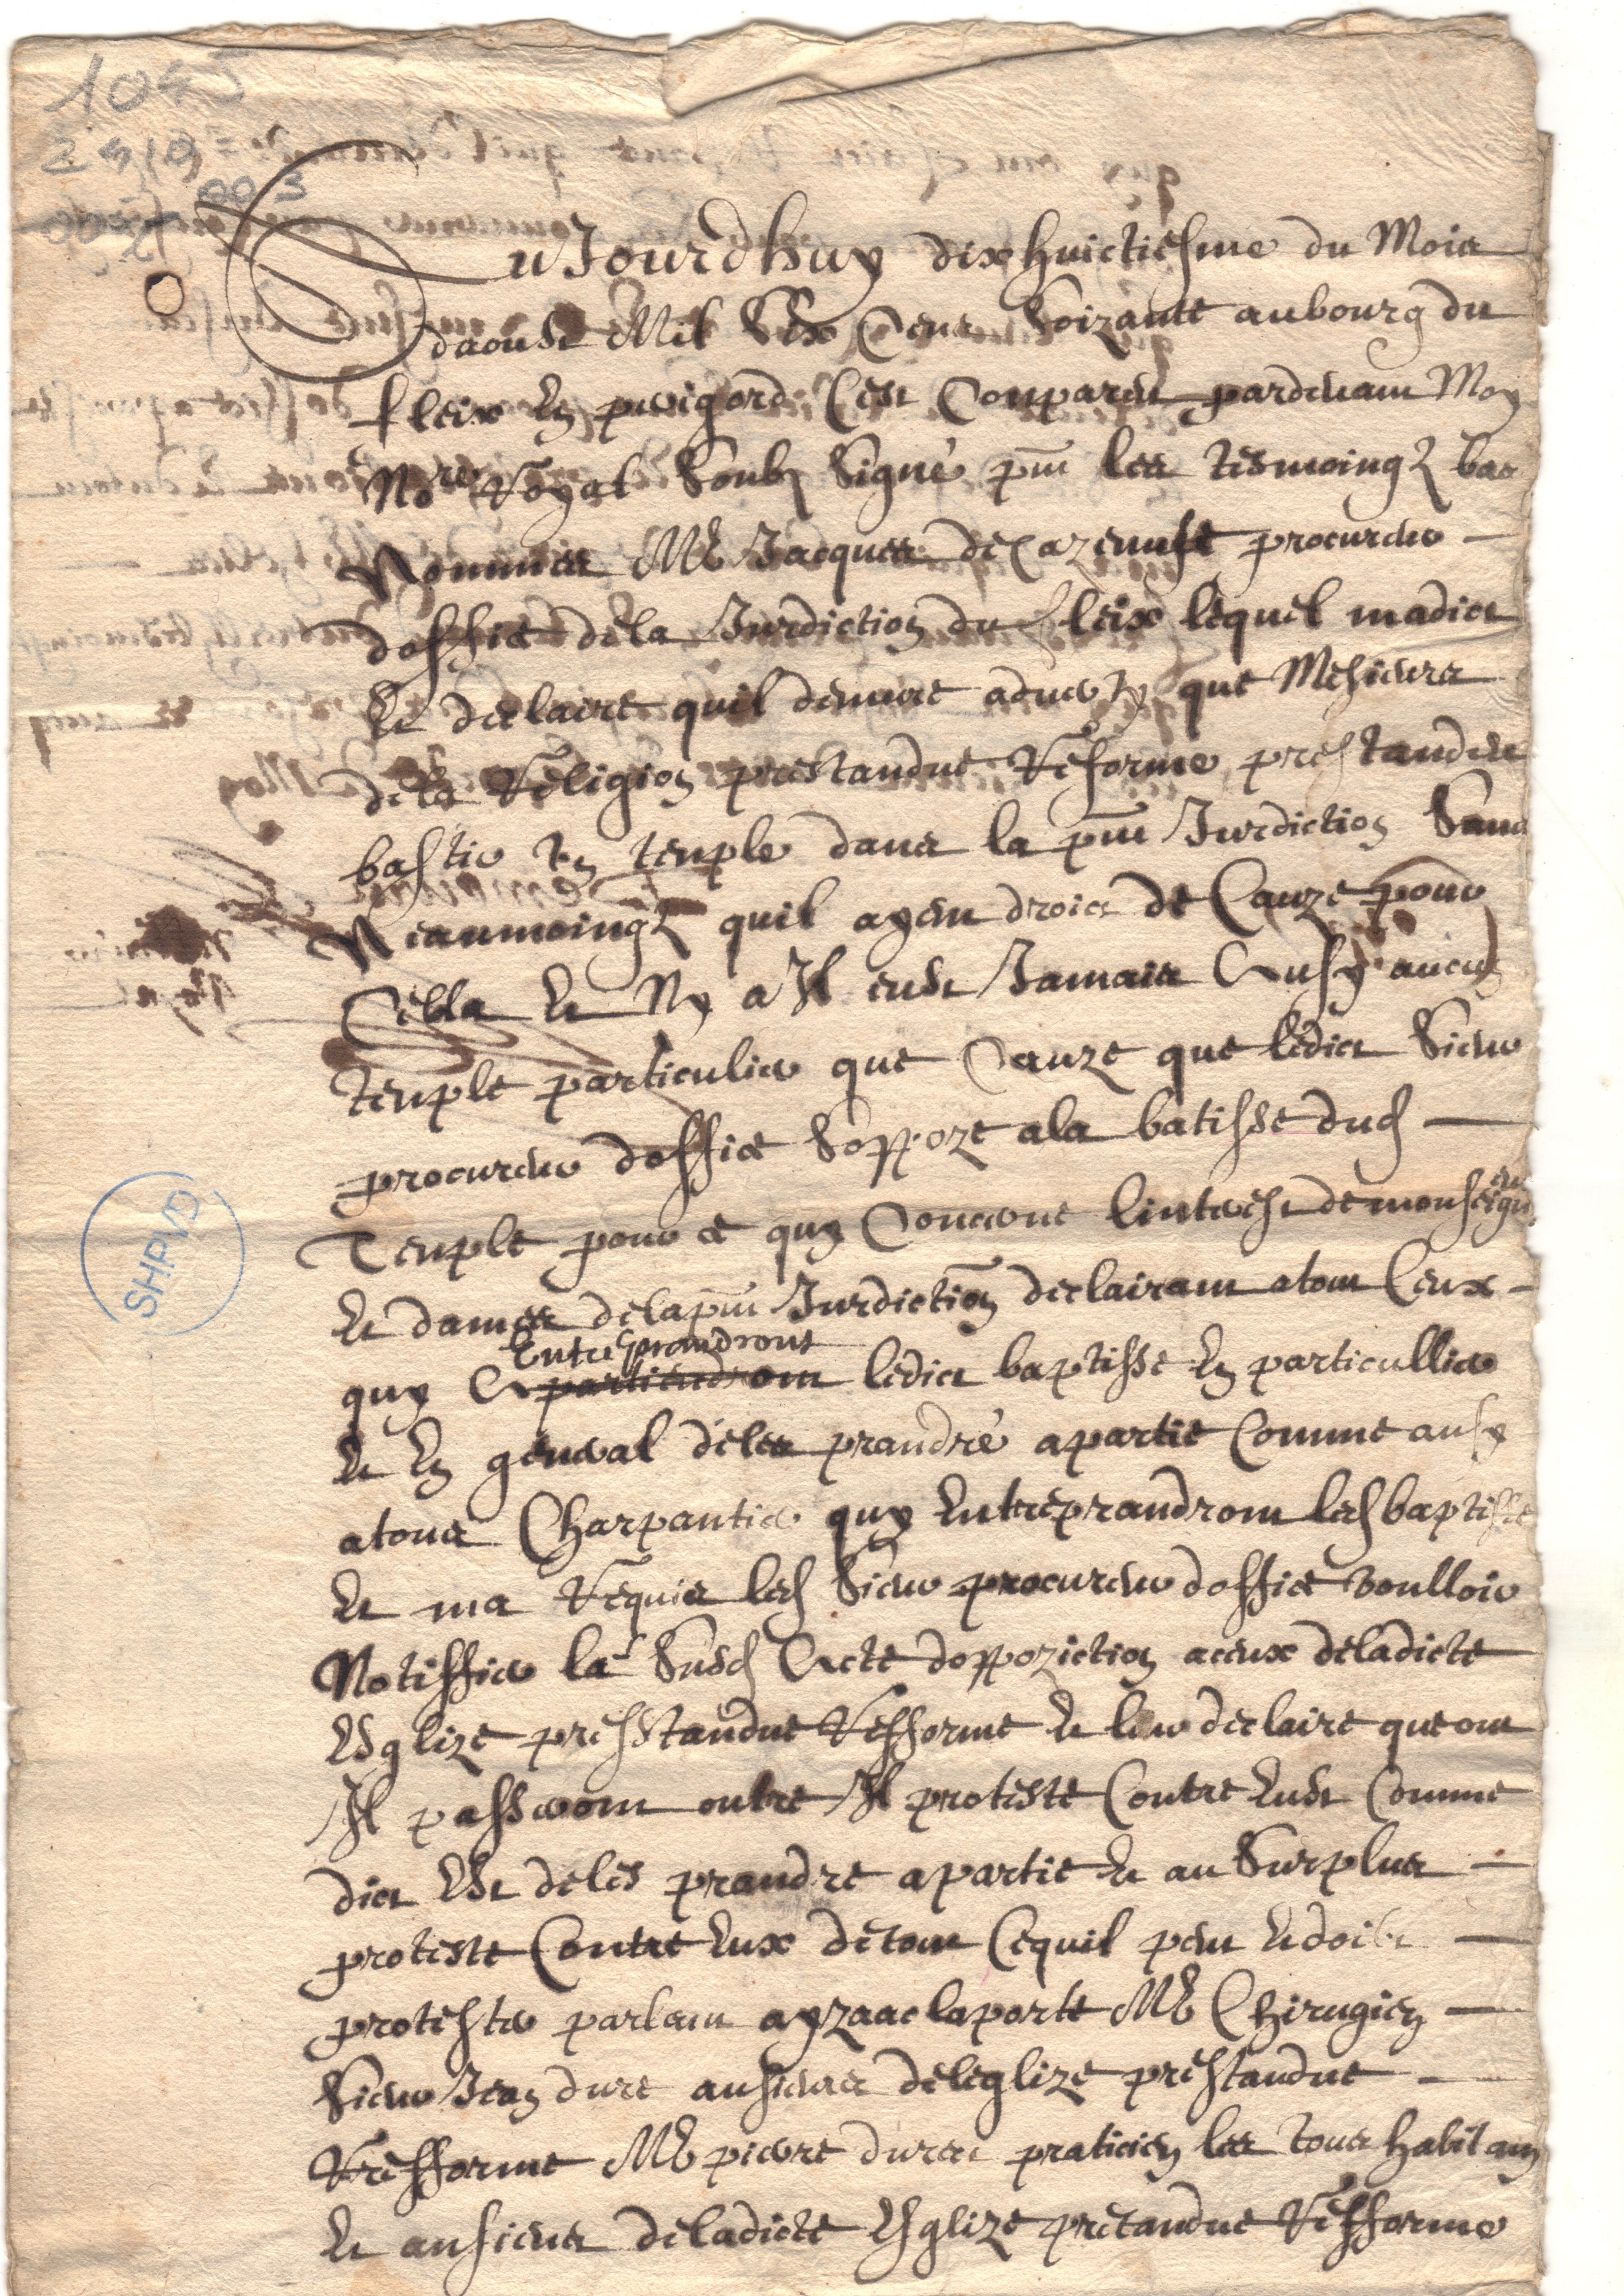 1045
Aujourdhuy dixhuictiesme du Mois
daoust Mil Six Cens Soizante au bourg du
fleix En perigord Cest Conparu pardevant Moy
Nore Royal Soubz Signé pnt les tesmoingz bas
Nommes Me Jacques de Cazenufe procureur
doffice de la Jurdiction du fleix lequel madict
Et declaire quil demure adverty que Mesieurs
dela Religion prestandue Reforme prestandent
bastir un temple dans la pnt Jurdiction Sans
Neanmoingz quil ayent droict de Cauze pour
Cella Et Ny a Il eust Jamais Ausy aucun
temple particulier que Cauze que ledict Sieur
procureur doffice Soppoze ala batisse dud
Temple pour ce quy Concerne linterest de monseigneur
Et dames dela pnt Jurdiction declairant atous Ceux
Entreprandront
quy ledict baptisse En particullier
Et En general deles prandre apartie Comme ausy
atous Charpantier quy Entreprandront lad baptisse
Et ma Requis led Sieur procureur doffice voulloir
Notiffier la Susd Acte doppoziction aceux deladicte
Esglize presstandue Refforme Et leur declaire que ou
Il passeront outre Il proteste Contre Eust Comme
dict Est deles prandre apartie Et au Surplus
proteste Contre Eux detout Cequil peut Et doibt
protester parlant ayzaac laporte Me Chirugien
Sieur Jean dure ansiens deleglize prestandue
Refforme Me pierre duree praticien les tous habitans
Et ansiens deladicte Esglize pretandue Refforme
SHPVD